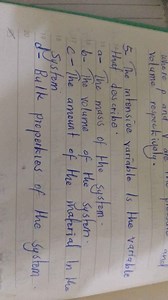 where p and V are the pressure and
volume respectively.
5- The intensive variable is the variable
that describe:
a- The mass of the system.
b- The volume of the system.
c- The amount of the material in the
system.
d- Bulk properties of the system.